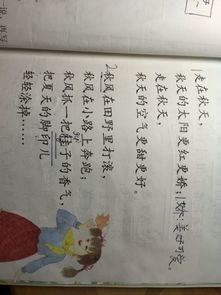 走在秋天,
秋天的太阳更红更娇;
走在秋天,
秋天的空气更甜更好。
2秋风在田野里打滚,
秋风在小路上奔跑;
秋风抓一把桂子的香气,
把夏天的脚印儿
轻轻涂掉……